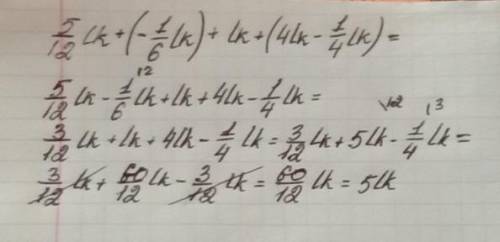 5/12 lk + (-1/6 lk) + lk + (4lk - 1/4 lk) =
5/12 lk - 1/6 lk + lk + 4lk - 1/4 lk =
3/12 lk + lk + 4lk - 1/4 lk = 3/12 lk + 5lk - 1/4 lk =
3/12 lk + 60/12 lk - 3/12 lk = 60/12 lk = 5lk